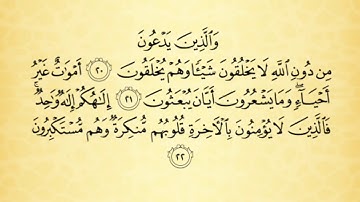 وَٱلَّذِينَ يَدۡعُونَ
مِن دُونِ ٱللَّهِ لَا يَخۡلُقُونَ شَيۡـٔٗا وَهُمۡ يُخۡلَقُونَ ٢٠ أَمۡوَٰتٌ غَيۡرُ
أَحۡيَآءٖۖ وَمَا يَشۡعُرُونَ أَيَّانَ يُبۡعَثُونَ ٢١ إِلَٰهُكُمۡ إِلَٰهٞ وَٰحِدٞۚ
فَٱلَّذِينَ لَا يُؤۡمِنُونَ بِٱلۡأٓخِرَةِ قُلُوبُهُم مُّنكِرَةٞ وَهُم مُّسۡتَكۡبِرُونَ
٢٢